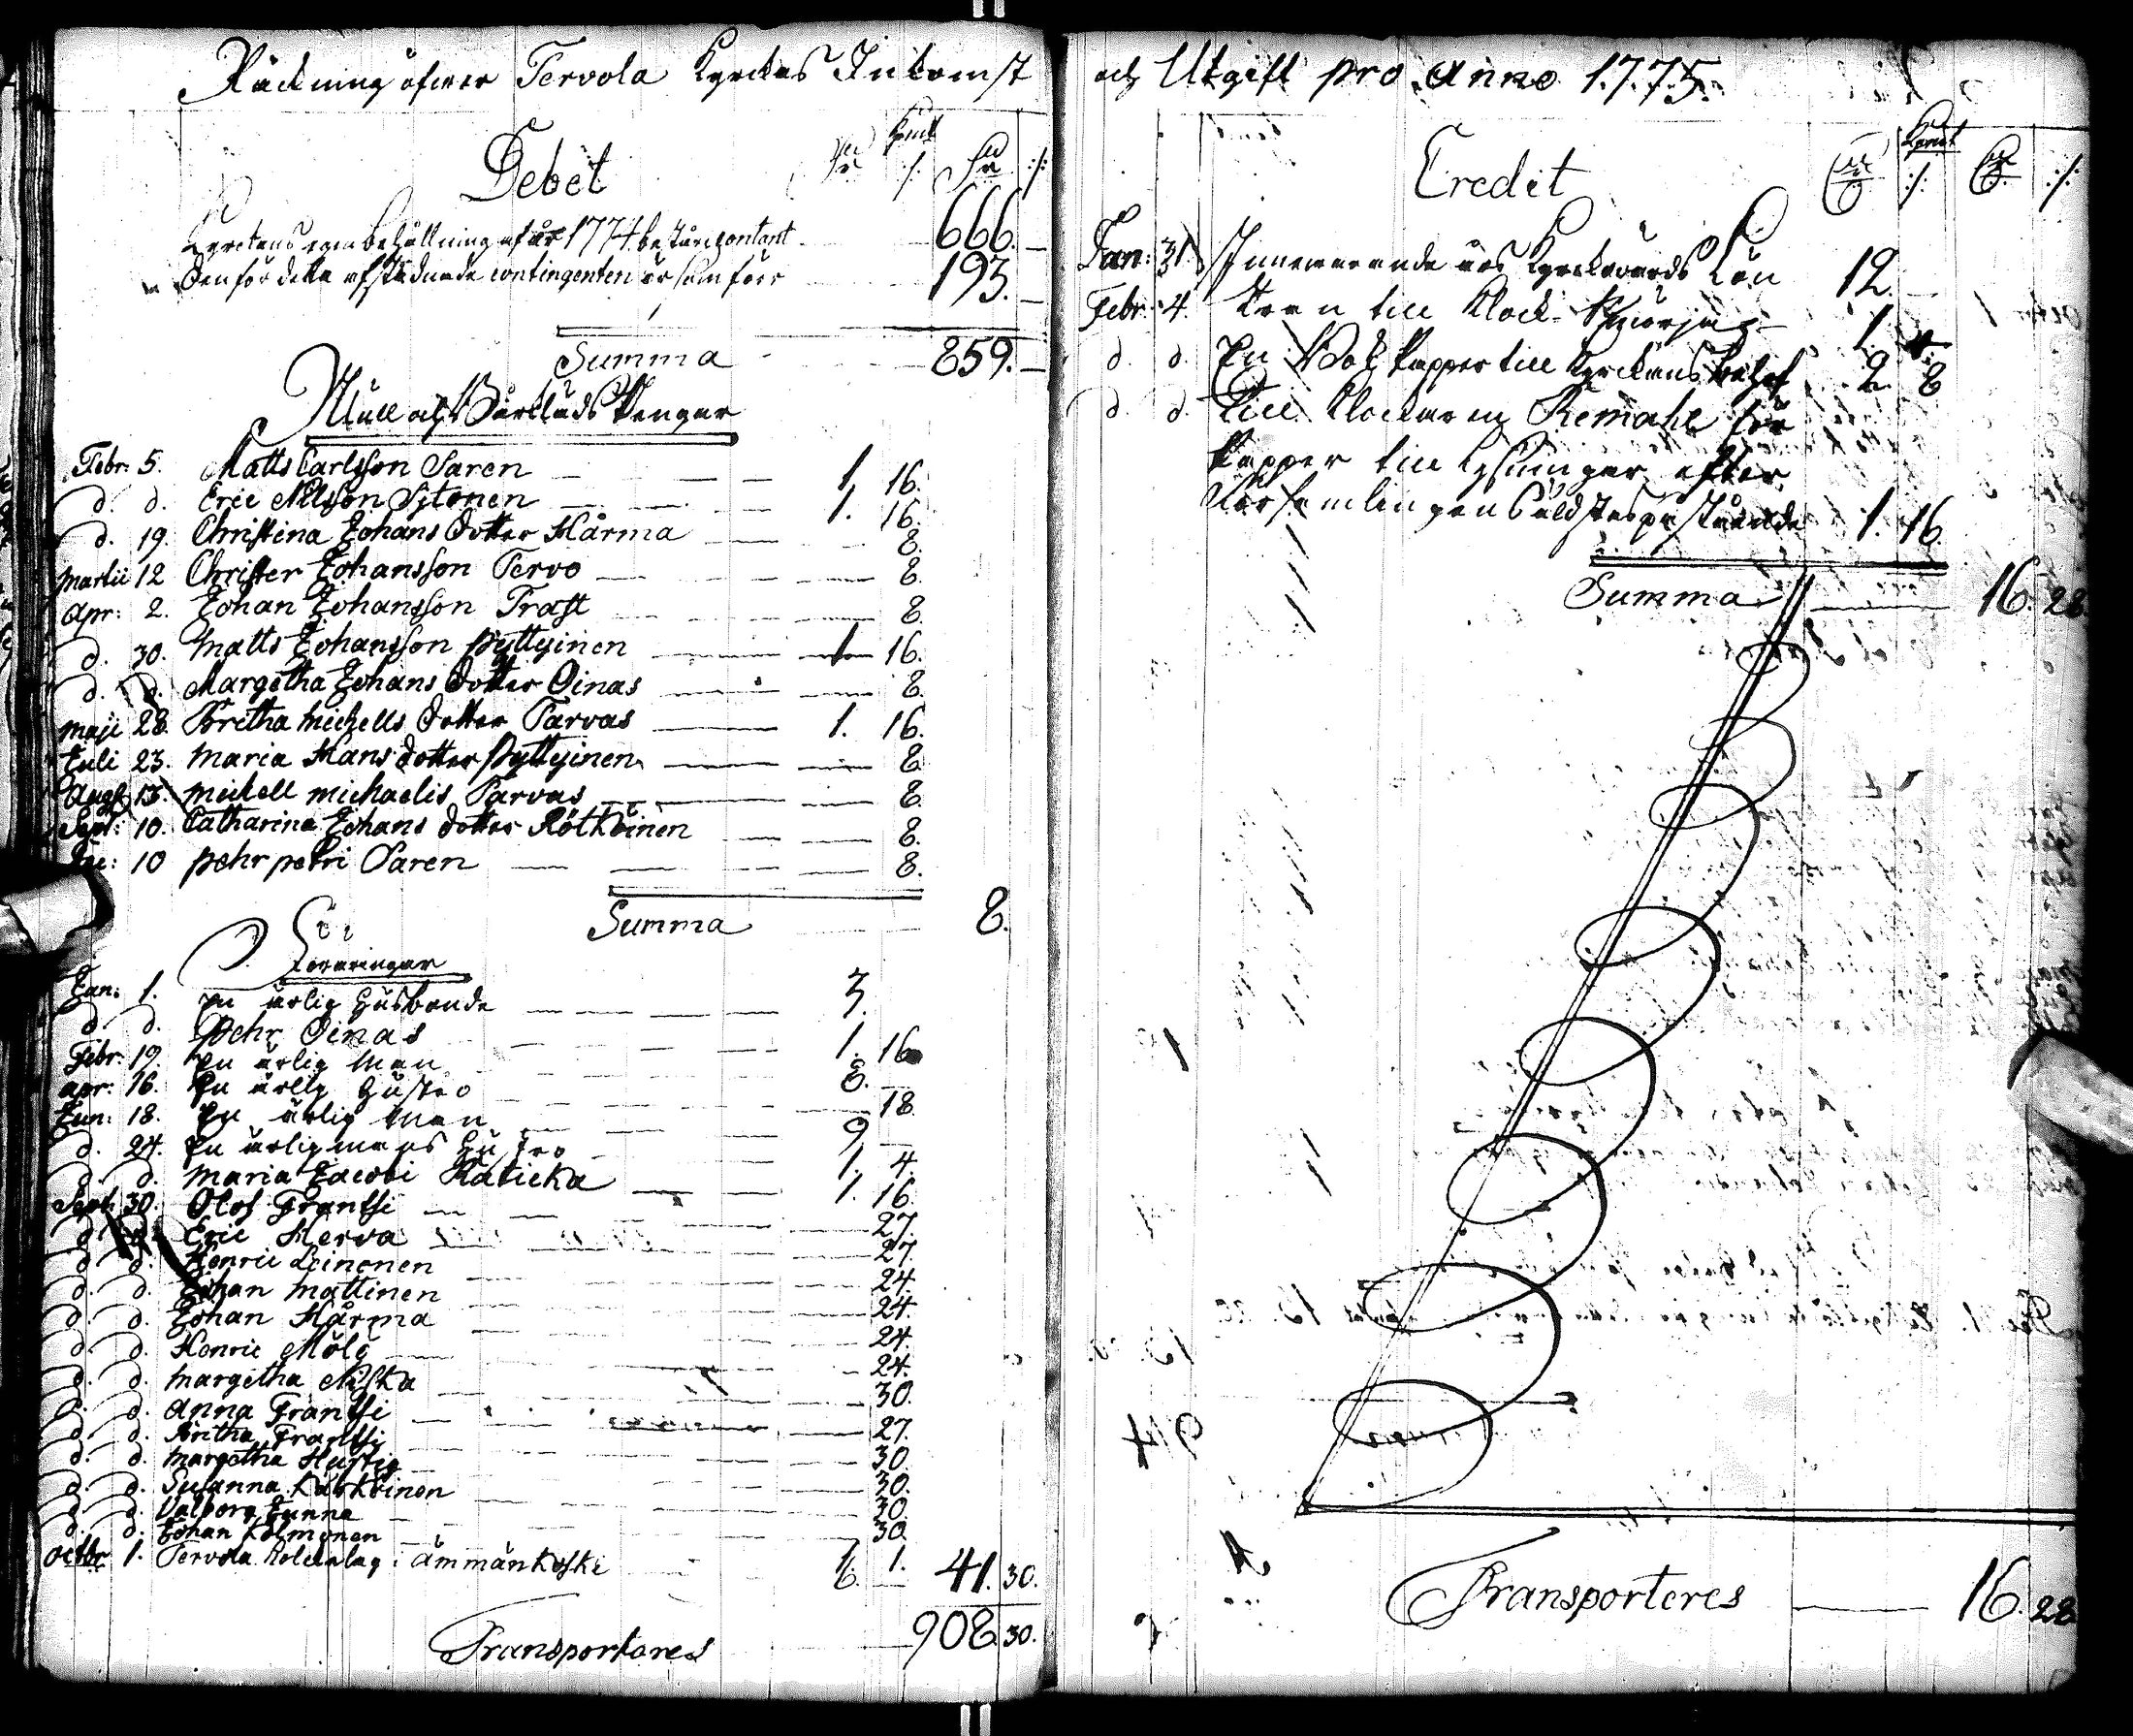 Räckning öfwer Tervola Kyrckas Inkomst
Debet
Kyrckans egen behållning af år 1774 består i contant 666. —
Den för detta afstadnade contingenten är som förr 193. —
Summa 859. —
Mull och Bårkläds Pengar
Febr: 5. Matts Carlsson Saren 1. 16.
d. d. Eric Nilsson Sytonen 1. 16.
d. 19. Christina Johans dotter Härma 8.
Martii 12 Christer Johansson Tervo 8.
Apr: 2. Johan Johansson Trast 8.
d. 30. Matts Johansson Pyttyinen 1 16.
d. d. Margetha Johans dotter Oinas 8.
Maji 28. Britha Michells dotter Parvas 1. 16.
Juli 23. Maria Hans dotter Pyttyinen 8.
Augs: 13. Michell Michaelis Parvas 8.
Sept: 10. Catharina Johans dotter Rötköinen 8.
Dec: 10 Pehr Petri Saren 8.
Summa 8.
Föräringar
Jan: 1. En ärlig Husbonde 3.
d. d. Pehr Oinas 1. 16
Febr: 19. En ärlig Man 8. —
Apr: 16. En ärlig Hustro 18.
Jun: 18. En ärlig Man 9 —
d. 24. En ärlig mans Hustro 1. 4.
d. d. Maria Jacobi Raticka 1. 16.
Sept: 30. Olof Frantsi 27.
d. d. Eric Herva 27.
d. d. Henric Leinonen 24.
d. d. Johan Mattinen 24.
d. d. Johan Härma 24.
d. d. Henric Mölg 24.
d. d. Margetha Niska 30.
d. d. Anna Frantsi 27.
d. d. Britha Frantsi 30.
d. d. Margetha Hastig 30.
d. d. Susanna Kärköinen 30.
d. d. Valborg Junna 30.
d. d. Johan Kolmonen 1. 1.
Octbr 1. Tervola Nolculag i Ämmänkoski 6. — 41. 30.
Transporteres 908. 30.
och Utgift pro Anno 1775.
Credit
Jan: 31. Innewarande års Kyrckowärds Lön 12. —
Febr: 4. Tran till Klock Smörjning 1.
d. d. En Bok Papper till Kyrckans behof 2. 8
d. d. Till Klockaren Remahl för
Papper till Lysningar efter
Församlingens åldstes påstående 1. 16
Summa 16. 28
Transporteres 16. 28